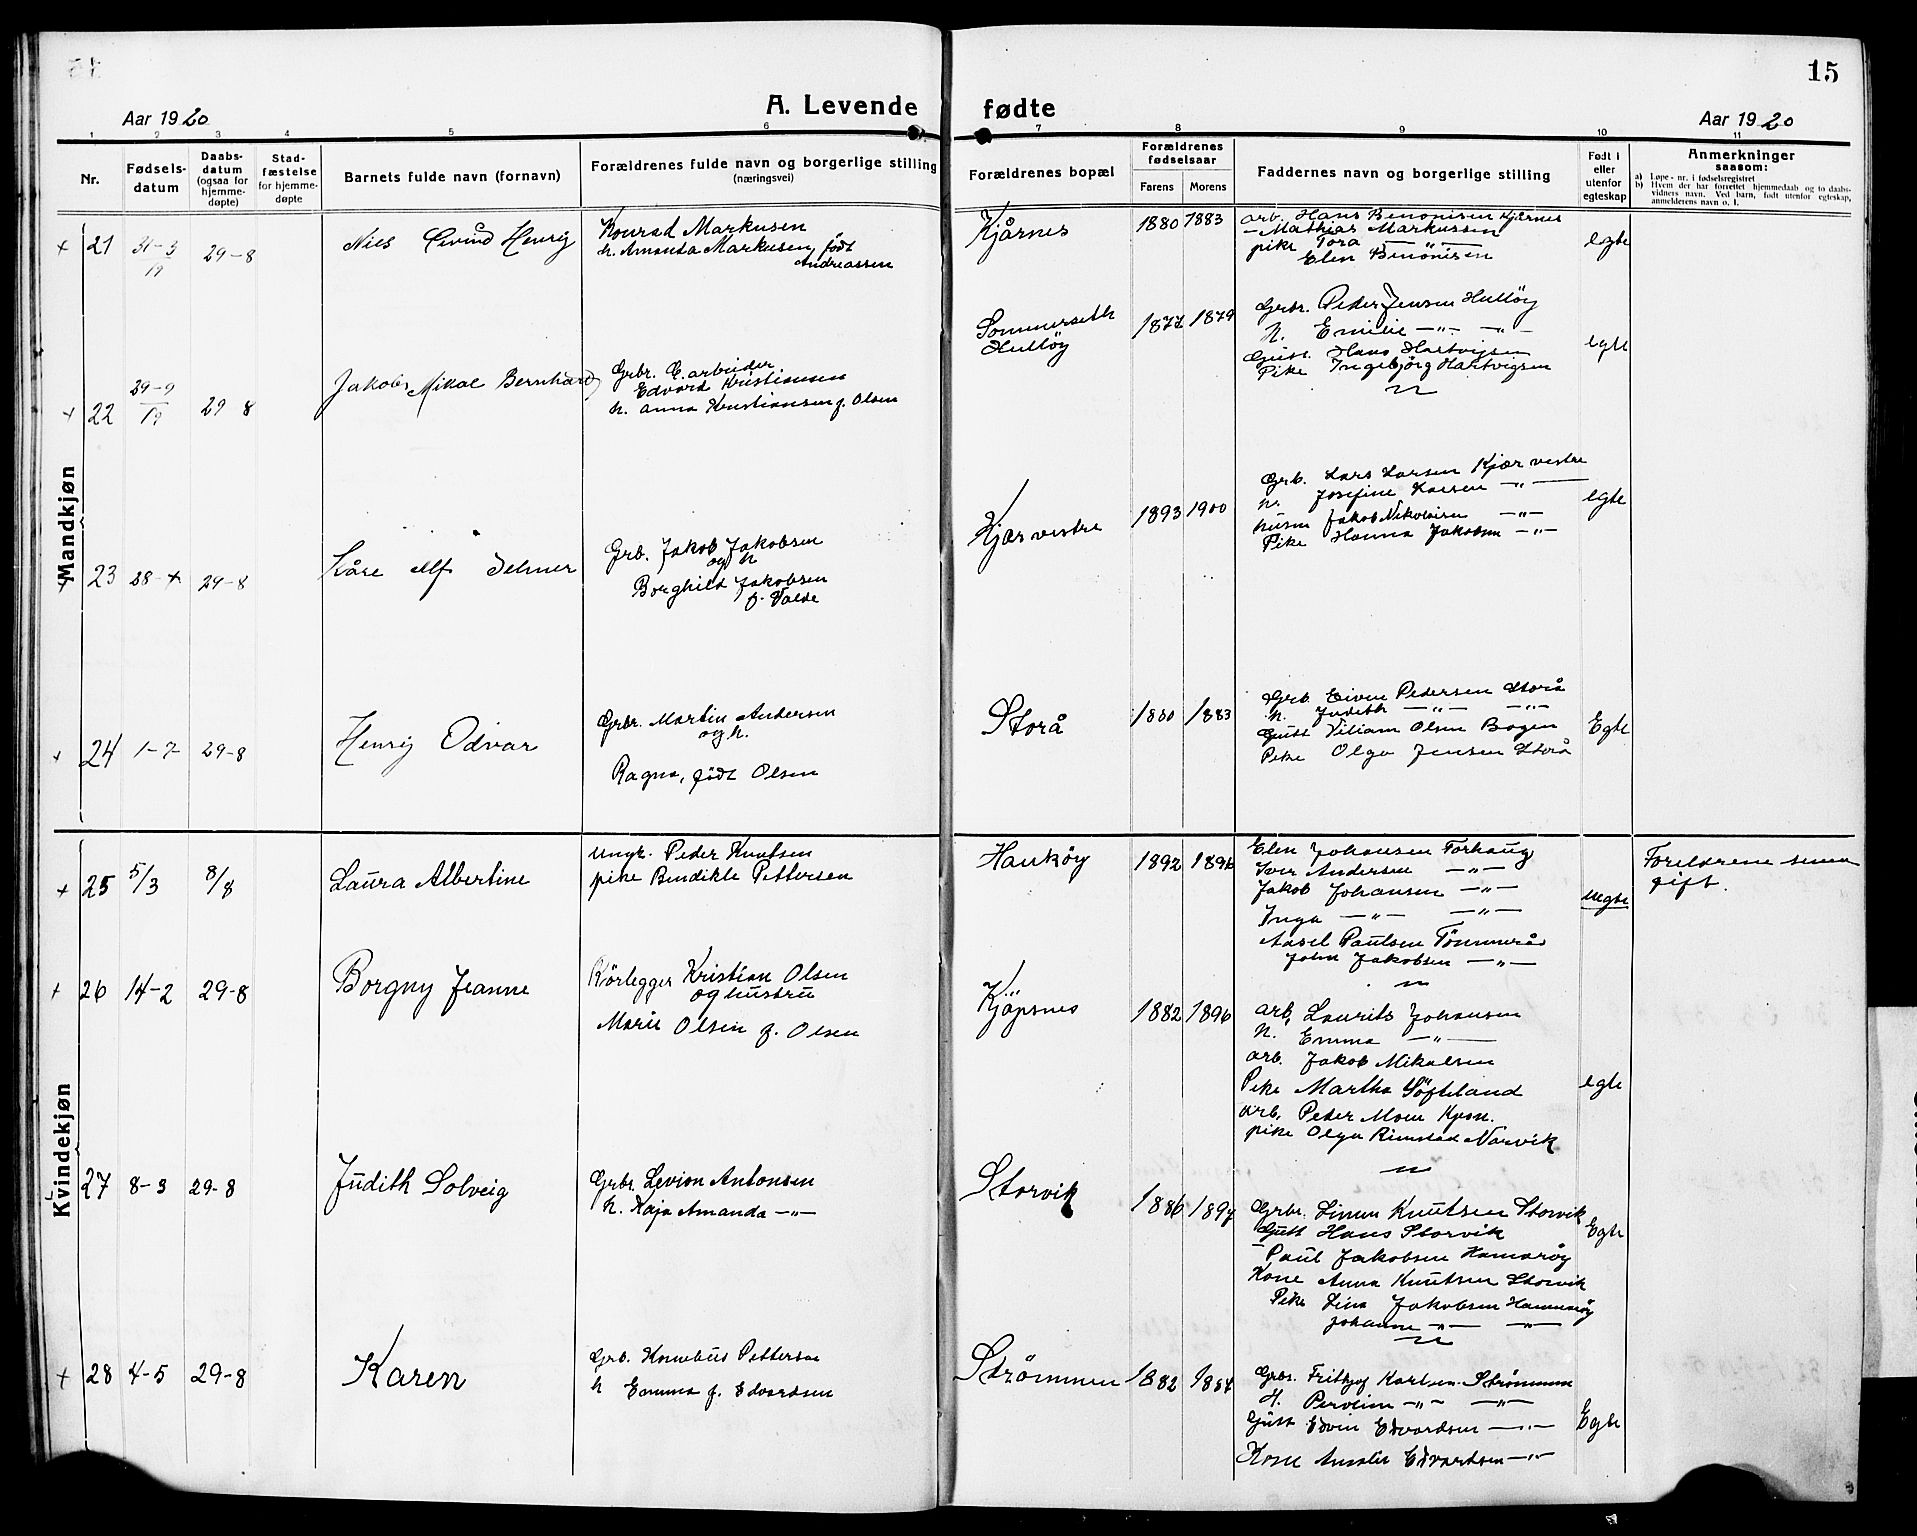 15
Aar 1920
A. Levende fødte
Aar 1920
1 2 3 4 5 6 7 8 9 10 11
Nr.
Fødsels-
datum
Daabs-
datum
(ogsaa for
hjemme-
døpte)
Stad-
fæstelse
for hjemme-
døpte
Barnets fulde navn (fornavn)
Forældrenes fulde navn og borgerlige stilling
(næringsvei)
Forældrenes bopæl
Forældrenes
fødselsaar
Farens
Morens
Faddernes navn og borgerlige stilling
Født i
eller
utenfor
egteskap
Anmerkninger
saasom:
a) Løpe-nr. i fødselsregistret
b) Hvem der har forrettet hjemmedaab og to daabs-
vidners navn. Ved barn, født utenfor egteskap,
anmelderens navn o. l.
Mandkjøn
+ 21 31-3
19
29-8
Nils Eivind Henrig
Konrad Markusen
h. Amanda Markusen, født
Andreassen
Kjårnes
1880 1883
arb. Hans Benonisen Kjårnes
— Mathias Markussen
pike Tora — „ —
Elen Benonisen
egte
+ 22 29-9
19
29 8
Jakob Mikal Bernhard
Grbr. E. arbeider
Edvard Kristiansen
h. Anna Kristiansen f. Olsen
Sommerseth
Hulløy
1877 1879
Grbr. Peder Jensen Hulløy
h. Emilie — „ — „ —
Gutt. Hans Hartvigsen
Pike Ingebjørg Hartvigsen
egte
+ 23 28-4 29-8
Kåre Alf Delmer
Grb. Jakob Jakobsen
og h
Borghild Jakobsen
f. Valde
Kjær vestre
1893 1900
Grb. Lars Larsen Kjær vestre
h. Josefine Larsen — „ —
husm Jakob Nikolaisen — „ —
Pike Hanna Jakobsen — „ —
egte
+ 24 1-7 29-8
Henrig Odvar
Grbr. Martin Andersen
og h.
Ragna, født Olsen
Storå
1880 1883
Grb. Eivin Pedersen Storå
h. Judith — „ — — „ —
Gutt Viliam Olsen Bogen
Pike Olga Jensen Storå
Egte
Kvindekjøn
+ 25 5/3 8/8
Laura Albertine
ungk. Peder Knutsen
pike Bendikte Pettersen
Haukøy
1892 1896
Elen Johansen Forhaug
Iver Andersen — „ —
Jakob Johansen — „ —
Inga — „ — — „ —
Aasel Paulsen Tømmerås
John Jakobsen — „ —
uegte
Foreldrene senere
gift.
+ 26 14-2 29-8
Borgny Jeanne
Rørlegger Kristian Olsen
og hustru
Marie Olsen f. Olsen
Kjøpsnes
1882 1896
arb. Laurits Johansen
h. Emma — „ —
arb. Jakob Mikalsen
Pike Martha Søfteland
arb. Peder Moen
pike Olga Rimstad Narvik
egte
27 8-3 29-8
Judith Solveig
Grbr. Levion Antonsen
h. Kaja Amanda — „ —
Storvik
1886 1897
Grbr. Simon Knutsen Storvik
Gutt Hans Storvik
— Paul Jakobsen Hamarøy
Kone Anna Knutsen Storvik
Pike Lina Jakobsen Hammarøy
Johanne — „ — — „ —
Egte
+ 28 4-5 29-8
Karen
Grb. Kornelius Pettersen
h Emma f. Edvardsen
Strømmen
1882 1884
Grbr. Fritjof Karlsen Strømmen
H. — „ — — „ —
Gutt Edvin Edvardsen — „ —
Kone Amalie Edvardsen — „ —
Egte